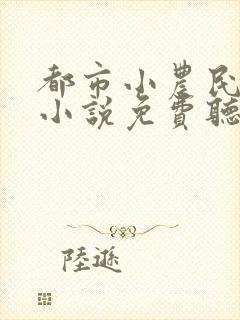 都市小農民
小說免費聽
陸遜